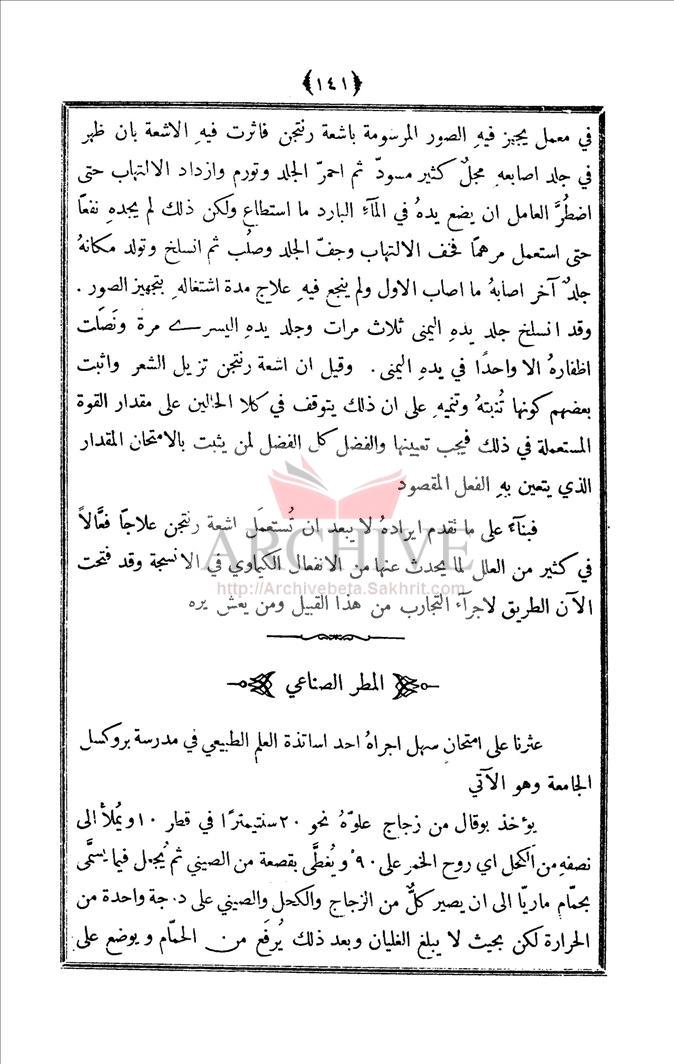 ﴿١٤١﴾
في معمل يجيز فيهِ الصور المرسومة باشعة رنتجن فاثرت فيهِ الاشعة بان ظهر
في جلد اصابعهِ مجلٌ كثير مسودّ ثم احمرّ الجلد وتورم وازداد الالتهاب حتى
اضطُرَّ العامل ان يضع يدهُ في المآء البارد ما استطاع ولكن ذلك لم يجدهِ نفعًا
حتى استعمل مرهمًا فخف الالتهاب وجفّ الجلد وصلُب ثم انسلخ وتولد مكانهُ
جلدٌ آخر اصابهُ ما اصاب الاول ولم ينجع فيهِ علاج مدة اشتغالهِ بتجهيز الصور .
وقد انسلخ جلد يدهِ اليمنى ثلاث مرات وجلد يدهِ اليسرے مرة ونَصَلت
اظفارهُ الا واحدًا في يدهِ اليمنى . وقيل ان اشعة رنتجن تزيل الشعر واثبت
بعضهم كونها تُنبتهُ وتنميهِ على ان ذلك يتوقف في كلا الحالين على مقدار القوة
المستعملة في ذلك فيجب تعيينها والفضل كل الفضل لمن يثبت بالامتحان المقدار
الذي يتعين بهِ الفعل المقصود
فبنآءً على ما تقدم ايرادهُ لا يبعد ان تُستعمَل اشعة رنتجن علاجًا فعَّالاً
في كثير من العلل لما يحدث عنها من الانفعال الكيماوي في الانسجة وقد فتحت
الآن الطريق لاجرآء التجارب من هذا القبيل ومن يعش يره
ARCHIVE
http://Archivebeta.Sakhrit.com
المطر الصناعي
عثرنا على امتحانٍ سهل اجراهُ احد اساتذة العلم الطبيعي في مدرسة بروكسل
الجامعة وهو الآتي
يؤخذ بوقال من زجاج علوّهُ نحو ٢٠ سنتيمترًا في قطر ١٠ ويُملأ الى
نصفهِ من الكحل اي روح الخمر على ٩٠° ويُغطَّى بقصعة من الصيني ثم يُجعل فيما يسمَّى
بحمّام ماريّا الى ان يصير كلٌّ من الزجاج والكحل والصيني على درجة واحدة من
الحرارة لكن بحيث لا يبلغ الغليان وبعد ذلك يُرفَع من الحمّام ويوضع على